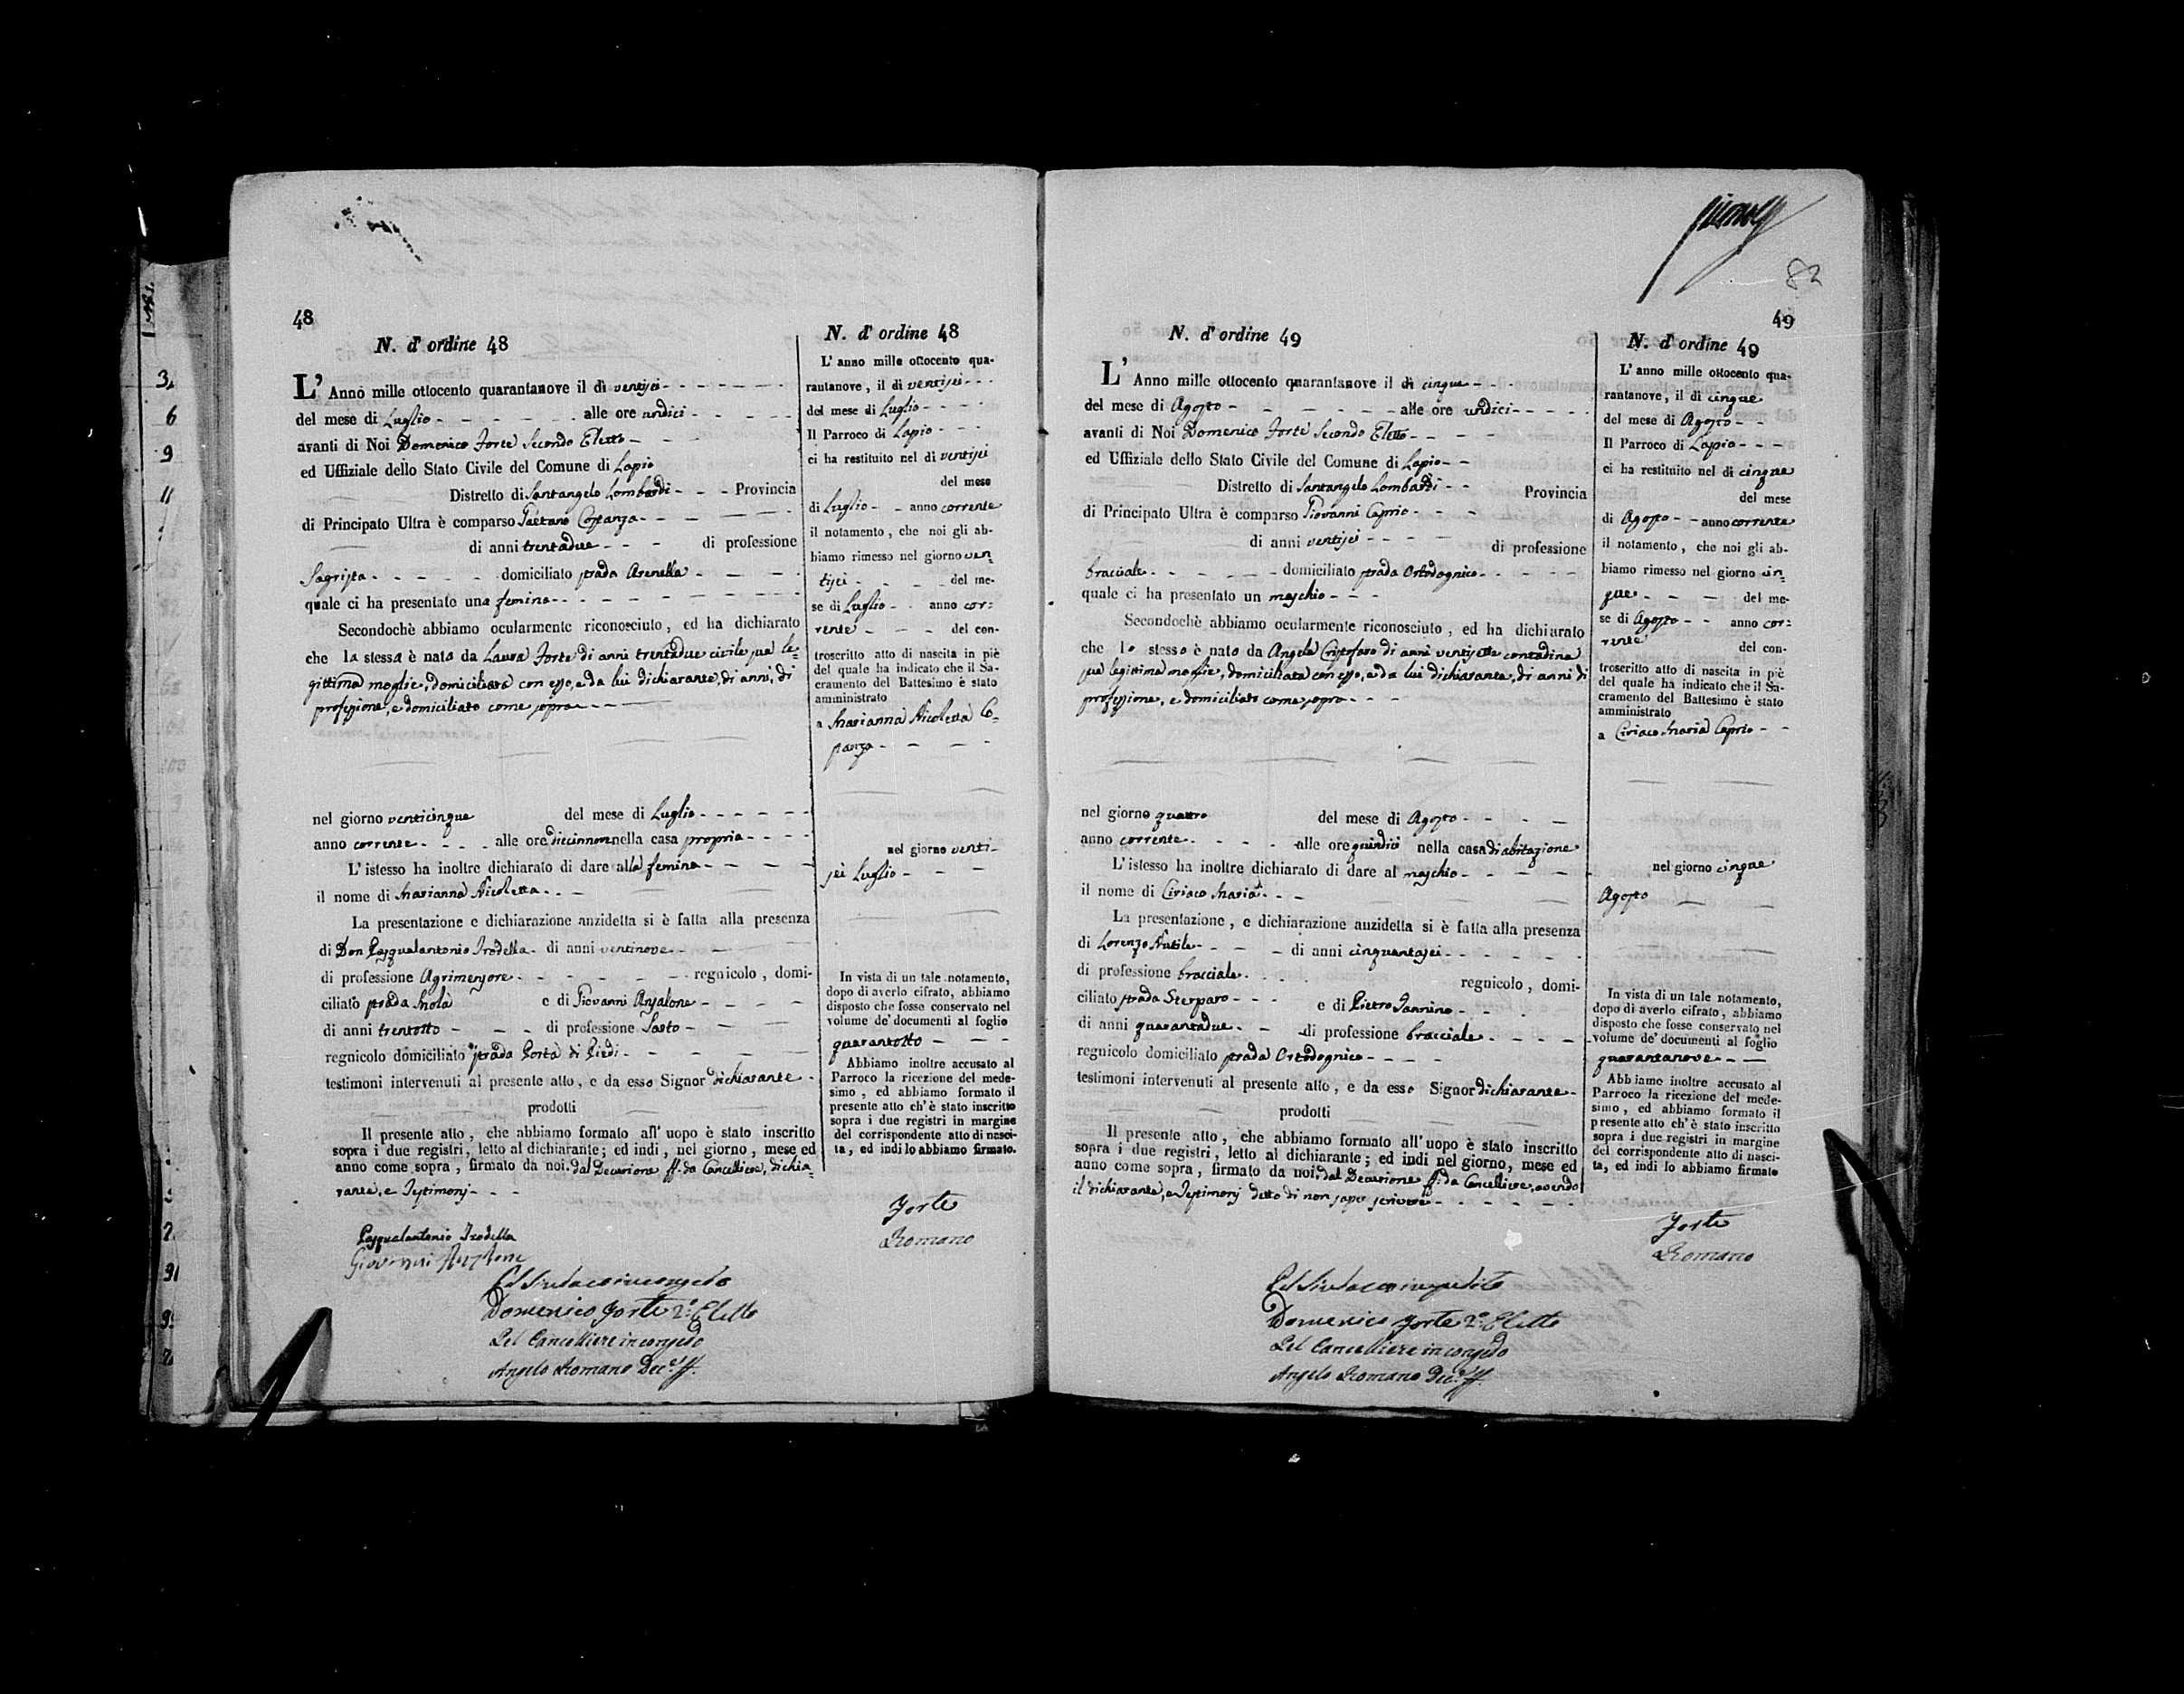 82
48
N. d' ordine 48
L' Anno mille ottocento quarantanove il dì ventisei
del mese di Luglio alle ore undici
avanti di Noi Domenico Forte Secondo Eletto
ed Uffiziale dello Stato Civile del Comune di Lapio
Distretto di Santangelo Lombardi Provincia
di Principato Ultra è comparso Gaetano Costanza
di anni trentadue di professione
Sagrista domiciliato strada Arenella
quale ci ha presentato una femina
Secondochè abbiamo ocularmente riconosciuto, ed ha dichiarato
che la stessa è nata da Laura Forte di anni trentadue civile sua le=
gittima moglie, domiciliata con esso, e da lui dichiarante, di anni, di
professione, e domiciliato come sopra
nel giorno venticinque del mese di Luglio
anno corrente alle ore diecinnove nella casa propria
L' istesso ha inoltre dichiarato di dare alla femina
il nome di Marianna Nicoletta
La presentazione e dichiarazione anzidetta si è fatta alla presenza
di Don Pasqualantonio di anni ventinove
di professione Agrimensore regnicolo, domi-
ciliato strada Molà e di Giovanni Anzalone
di anni trentotto di professione Sarto
regnicolo domiciliato strada Porta di Piedi
testimoni intervenuti al presente atto, e da esso Signor dichiarante
prodotti
Il presente atto, che abbiamo formato all' uopo è stato inscritto
sopra i due registri, letto al dichiarante; ed indi, nel giorno, mese ed
anno come sopra, firmato da noi, dal Decurione ff. da Cancelliere, dichia=
rante, e Testimonj
Pasqualantonio
Giovanni Anzalone
Pel Sindaco in congedo
Domenico Forte 2.° Eletto
Pel Cancelliere in congedo
Angelo Romano Dec.e ff.
N. d' ordine 48
L' anno mille ottocento qua-
rantanove, il dì ventisei
del mese di Luglio
Il Parroco di Lapio
ci ha restituito nel dì ventisei
del mese
di Luglio anno corrente
il notamento, che noi gli ab-
biamo rimesso nel giorno ven=
tisei del me-
se di Luglio anno cor=
rente del con-
troscritto atto di nascita in piè
del quale ha indicato che il Sa-
cramento del Battesimo è stato
amministrato
a Marianna Nicoletta Co=
stanza
nel giorno venti=
sei Luglio
In vista di un tale notamento,
dopo di averlo cifrato, abbiamo
disposto che fosse conservato nel
volume de' documenti al foglio
quarantotto
Abbiamo inoltre accusato al
Parroco la ricezione del mede-
simo, ed abbiamo formato il
presente atto ch' è stato inscritto
sopra i due registri in margine
del corrispondente atto di nasci-
ta, ed indi lo abbiamo firmato.
Forte
Romano
49
N. d' ordine 49
L' Anno mille ottocento quarantanove il dì cinque
del mese di Agosto alle ore undici
avanti di Noi Domenico Forte Secondo Eletto
ed Uffiziale dello Stato Civile del Comune di Lapio
Distretto di Santangelo Lombardi Provincia
di Principato Ultra è comparso Giovanni Caprio
di anni ventisei di professione
bracciale domiciliato strada Ortodognico
quale ci ha presentato un maschio
Secondochè abbiamo ocularmente riconosciuto, ed ha dichiarato
che lo stesso è nato da Angela Cristofaro di anni ventisette contadina
sua legittima moglie, domiciliata con esso, e da lui dichiarante, di anni di
professione, e domiciliato come sopra
nel giorno quattro del mese di Agosto
anno corrente alle ore quindici nella casa di abitazione
L' istesso ha inoltre dichiarato di dare al maschio
il nome di Ciriaco Maria
La presentazione, e dichiarazione anzidetta si è fatta alla presenza
di Lorenzo Nutile di anni cinquantasei
di professione bracciale regnicolo, domi-
ciliato strada Sterparo e di Pietro Iannino
di anni quarantadue di professione bracciale
regnicolo domiciliato strada Ortodognico
testimoni intervenuti al presente atto, e da esso Signor dichiarante
prodotti
Il presente atto, che abbiamo formato all' uopo è stato inscritto
sopra i due registri, letto al dichiarante; ed indi nel giorno, mese ed
anno come sopra, firmato da noi, dal Decurione ff. da Cancelliere, avendo
il dichiarante, e Testimonj detto di non saper scrivere
Pel Sindaco impedito
Domenico Forte 2.° Eletto
Pel Cancelliere in congedo
Angelo Romano Dec.e ff.
N. d' ordine 49
L' anno mille ottocento qua-
rantanove, il dì cinque
del mese di Agosto
Il Parroco di Lapio
ci ha restituito nel dì cinque
del mese
di Agosto anno corrente
il notamento, che noi gli ab-
biamo rimesso nel giorno cin=
que del me-
se di Agosto anno cor=
rente del con-
troscritto atto di nascita in piè
del quale ha indicato che il Sa-
cramento del Battesimo è stato
amministrato
a Ciriaco Maria Caprio
nel giorno cinque
Agosto
In vista di un tale notamento,
dopo di averlo cifrato, abbiamo
disposto che fosse conservato nel
volume de' documenti al foglio
quarantanove
Abbiamo inoltre accusato al
Parroco la ricezione del mede-
simo, ed abbiamo formato il
presente atto ch' è stato inscritto
sopra i due registri in margine
del corrispondente atto di nasci-
ta, ed indi lo abbiamo firmato
Forte
Romano